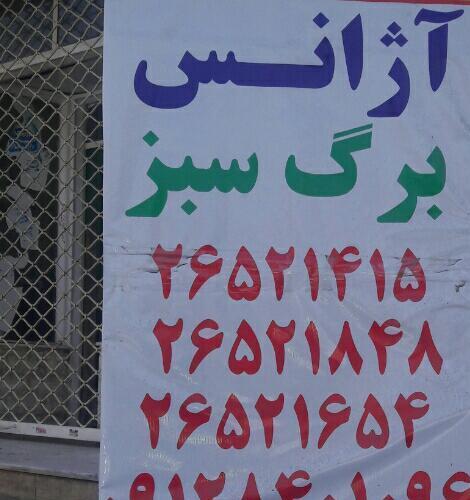 آژانس
برگ سبز
۲۶۵۲۱۴۱۵
۲۶۵۲۱۸۴۸
۲۶۵۲۱۶۵۴
۰۹۱۲۸۴۰۱۰۹۶